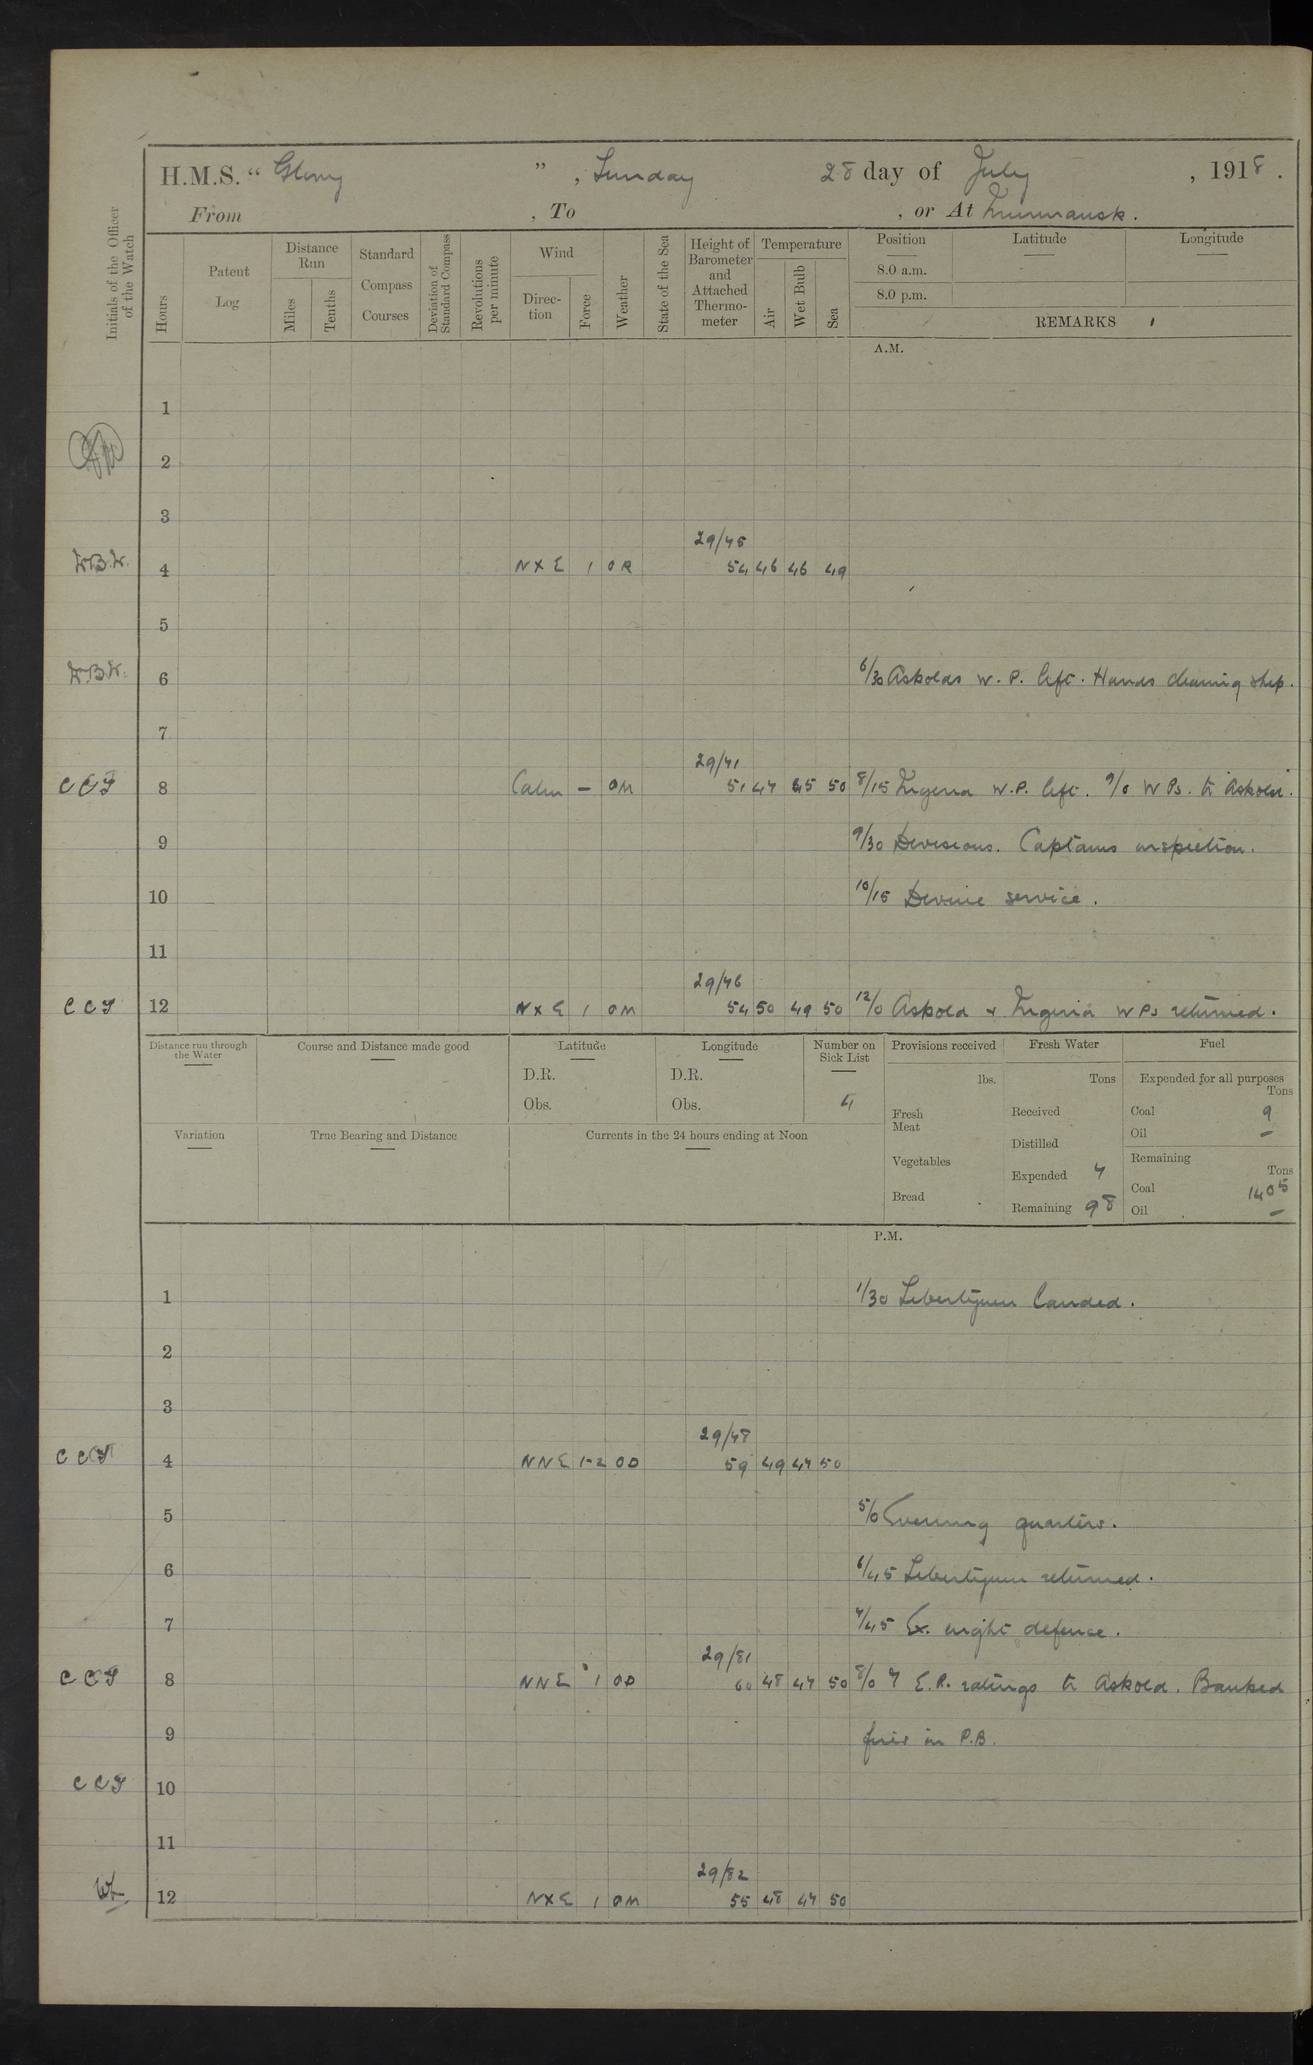 H.M.S. “ Glory ” , Sunday 28 day of July , 1918 .
From , To , or At Murmansk .
Initials of the Officer of the Watch
Hours
Patent Log
Distance Run
Miles
Tenths
Standard Compass Courses
Deviation of Standard Compass
Revolutions per minute
Wind
Direc-tion
Force
Weather
State of the Sea
Height of Barometer and Attached Thermo-meter
Temperature
Air
Wet Bulb
Sea
Position Latitude Longitude
8.0 a.m.
8.0 p.m.
REMARKS
A.M.
1
2
3
29/45
W.B.W. 4 N X E 1 O R 54 46 46 49
5
W.B.W. 6 6/30 Askolds W. P. left. Hands cleaning ship.
7
29/41
C C F 8 Calm – O M 51 47 45 50 8/15 Nigeria W.P. left. 9/0 W Ps. to Askold.
9 9/30 Divisions. Captains inspection.
10 10/15 Devine service.
11
29/46
C C F 12 N X E 1 O M 54 50 49 50 12/0 Askold & Nigeria W Ps returned.
Distance run through the Water
Course and Distance made good
Latitude
D.R.
Obs.
Longitude
D.R.
Obs.
Number on Sick List
4
Variation
True Bearing and Distance
Currents in the 24 hours ending at Noon
Provisions received
lbs.
Fresh Meat
Vegetables
Bread
Fresh Water
Tons
Received
Distilled
Expended 7
Remaining 98
Fuel
Expended for all purposes
Tons
Coal 9
Oil –
Remaining
Tons
Coal 1405
Oil –
P.M.
1 1/30 Libertymen landed.
2
3
29/48
C C F 4 N N E 1-2 O D 59 49 47 50
5 5/0 Evening quarters.
6 6/45 Libertymen returned.
7 7/45 Ex. night defence.
29/81
C C F 8 N N E 1 O D 60 48 47 50 8/0 7 E.R. ratings to Askold. Banked
9 fires in P.B.
C C F 10
11
29/82
12 N X E 1 O M 55 48 47 50